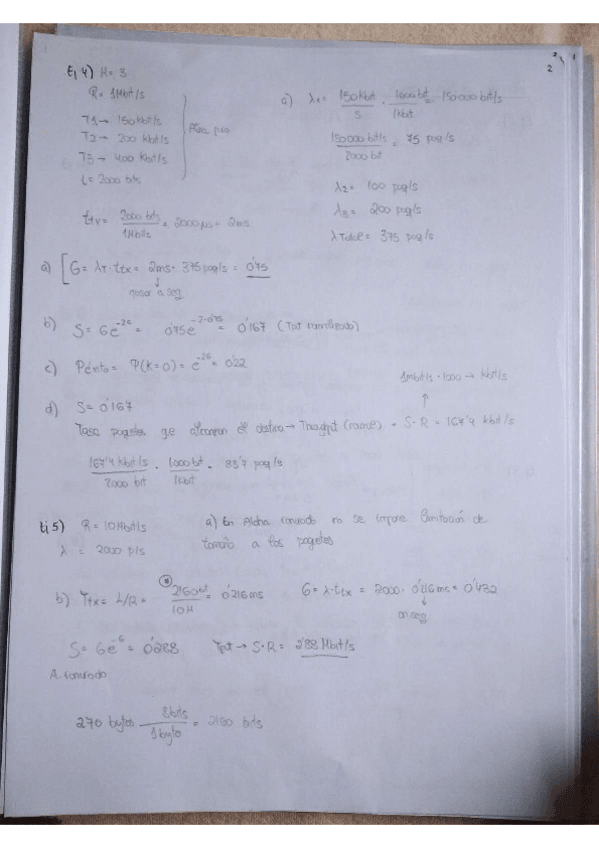 2
Ej 4) M = 3
R = 1Mbit/s
T1 → 150 kbit/s
T2 → 200 kbit/s
T3 → 400 kbit/s
L = 2000 bits
Aloha puro
a) λ1 = 150 kbit / s · 1000 bit / 1 kbit = 150000 bit/s
150000 bit/s / 2000 bit = 75 paq/s
λ2 = 100 paq/s
λ3 = 200 paq/s
λTotal = 375 paq/s
ttx = 2000 bits / 1Mbit/s = 2000 µs = 2ms
a) [ G = λT · ttx = 2ms · 375 paq/s = 0'75
↓
pasar a seg
b) S = Ge^-2G = 0'75e^-2·0'75 = 0'167 (Tput normalizado)
c) Péxito = P(k=0) = e^-2G = 0'22
d) S = 0'167
1Mbit/s · 1000 → kbit/s
↑
Tasa paquetes que alcanzan el destino → Throughput (normal) = S · R = 167'4 kbit/s
167'4 kbit/s / 2000 bit · 1000 bit / 1kbit = 83'7 paq/s
Ej 5) R = 10Mbit/s
λ = 2000 p/s
a) En Aloha ranurado no se impone limitación de
tamaño a los paquetes
b) Ttx = L/R = 2160 bit / 10M = 0'216ms
G = λ · ttx = 2000 · 0'216 ms = 0'432
↓
en seg
S = Ge^-G = 0'288 Tput → S·R = 2'88 Mbit/s
A. ranurado
270 bytes · 8bits / 1byte = 2160 bits